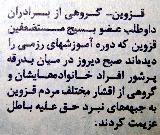 قزوین- گروهی از برادران
داوطلب عضو بسیج مستضعفین
قزوین که دوره آموزشهای رزمی را
دیده‌اند صبح دیروز در میان بدرقه
پرشور افراد خانواده‌هایشان و
گروهی از اقشار مختلف مردم قزوین
به جبهه‌های نبرد حق علیه باطل
عزیمت کردند.